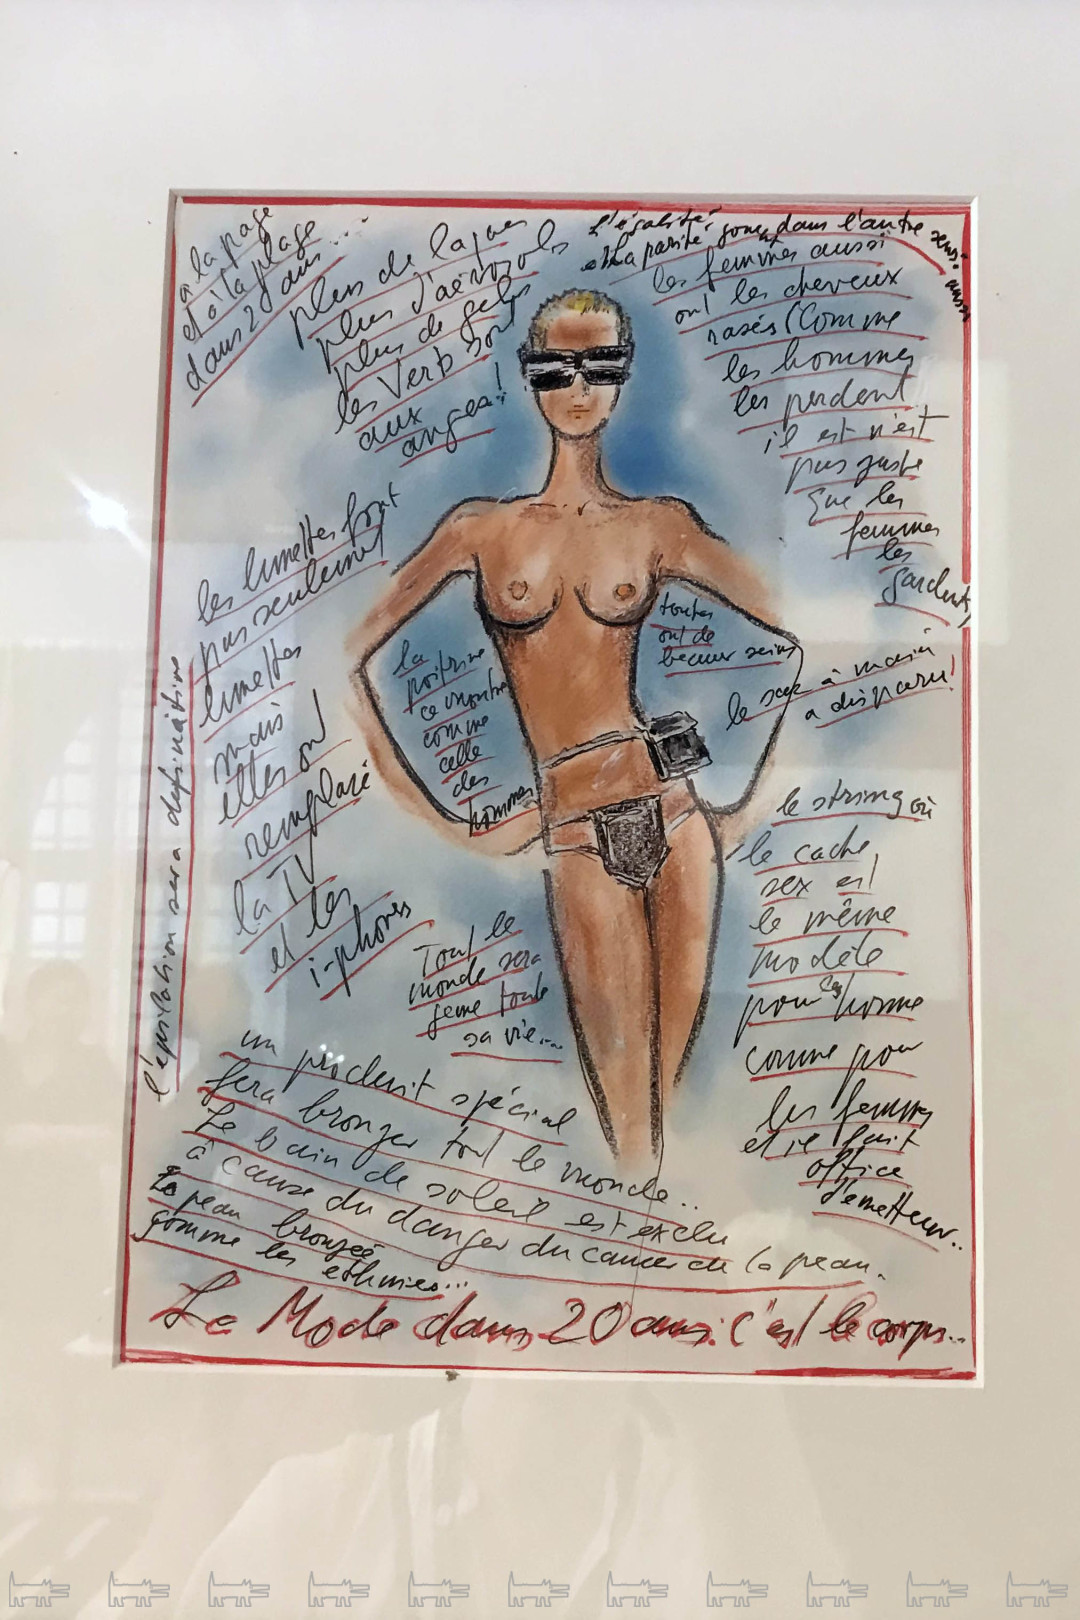 à la page
et à la plage
dans 20 ans
plus de laques
plus d'aérosols
plus de gels
les Verts sont
aux
anges!
L'égalité,
et la parité, joue dans l'autre sens aussi
les femmes aussi
ont les cheveux
rasés (Comme
les hommes
les perdent
il est n'est
pas juste
que les
femmes
les
gardent,
les lunettes font
pas seulement
lunettes
mais
elles on
remplacé
la TV
et les
i-phones
la
poitrine
ce montre
comme
celle
des
hommes
toutes
ont de
beaux seins
le sac à main
a disparu!
le string où
le cache
sex est
le même
modèle
pour les homme
comme pour
les femmes
et il fait
office
d'emetteur..
l'épilation sera définitive
Tout le
monde sera
jeune toute
sa vie...
un produit spécial
fera bronzer tout le monde..
Le bain de soleil est exclu
à cause du danger du cancer de la peau.
La peau bronzée
gomme les ethnies...
La Mode dans 20 ans: c'est le corps..